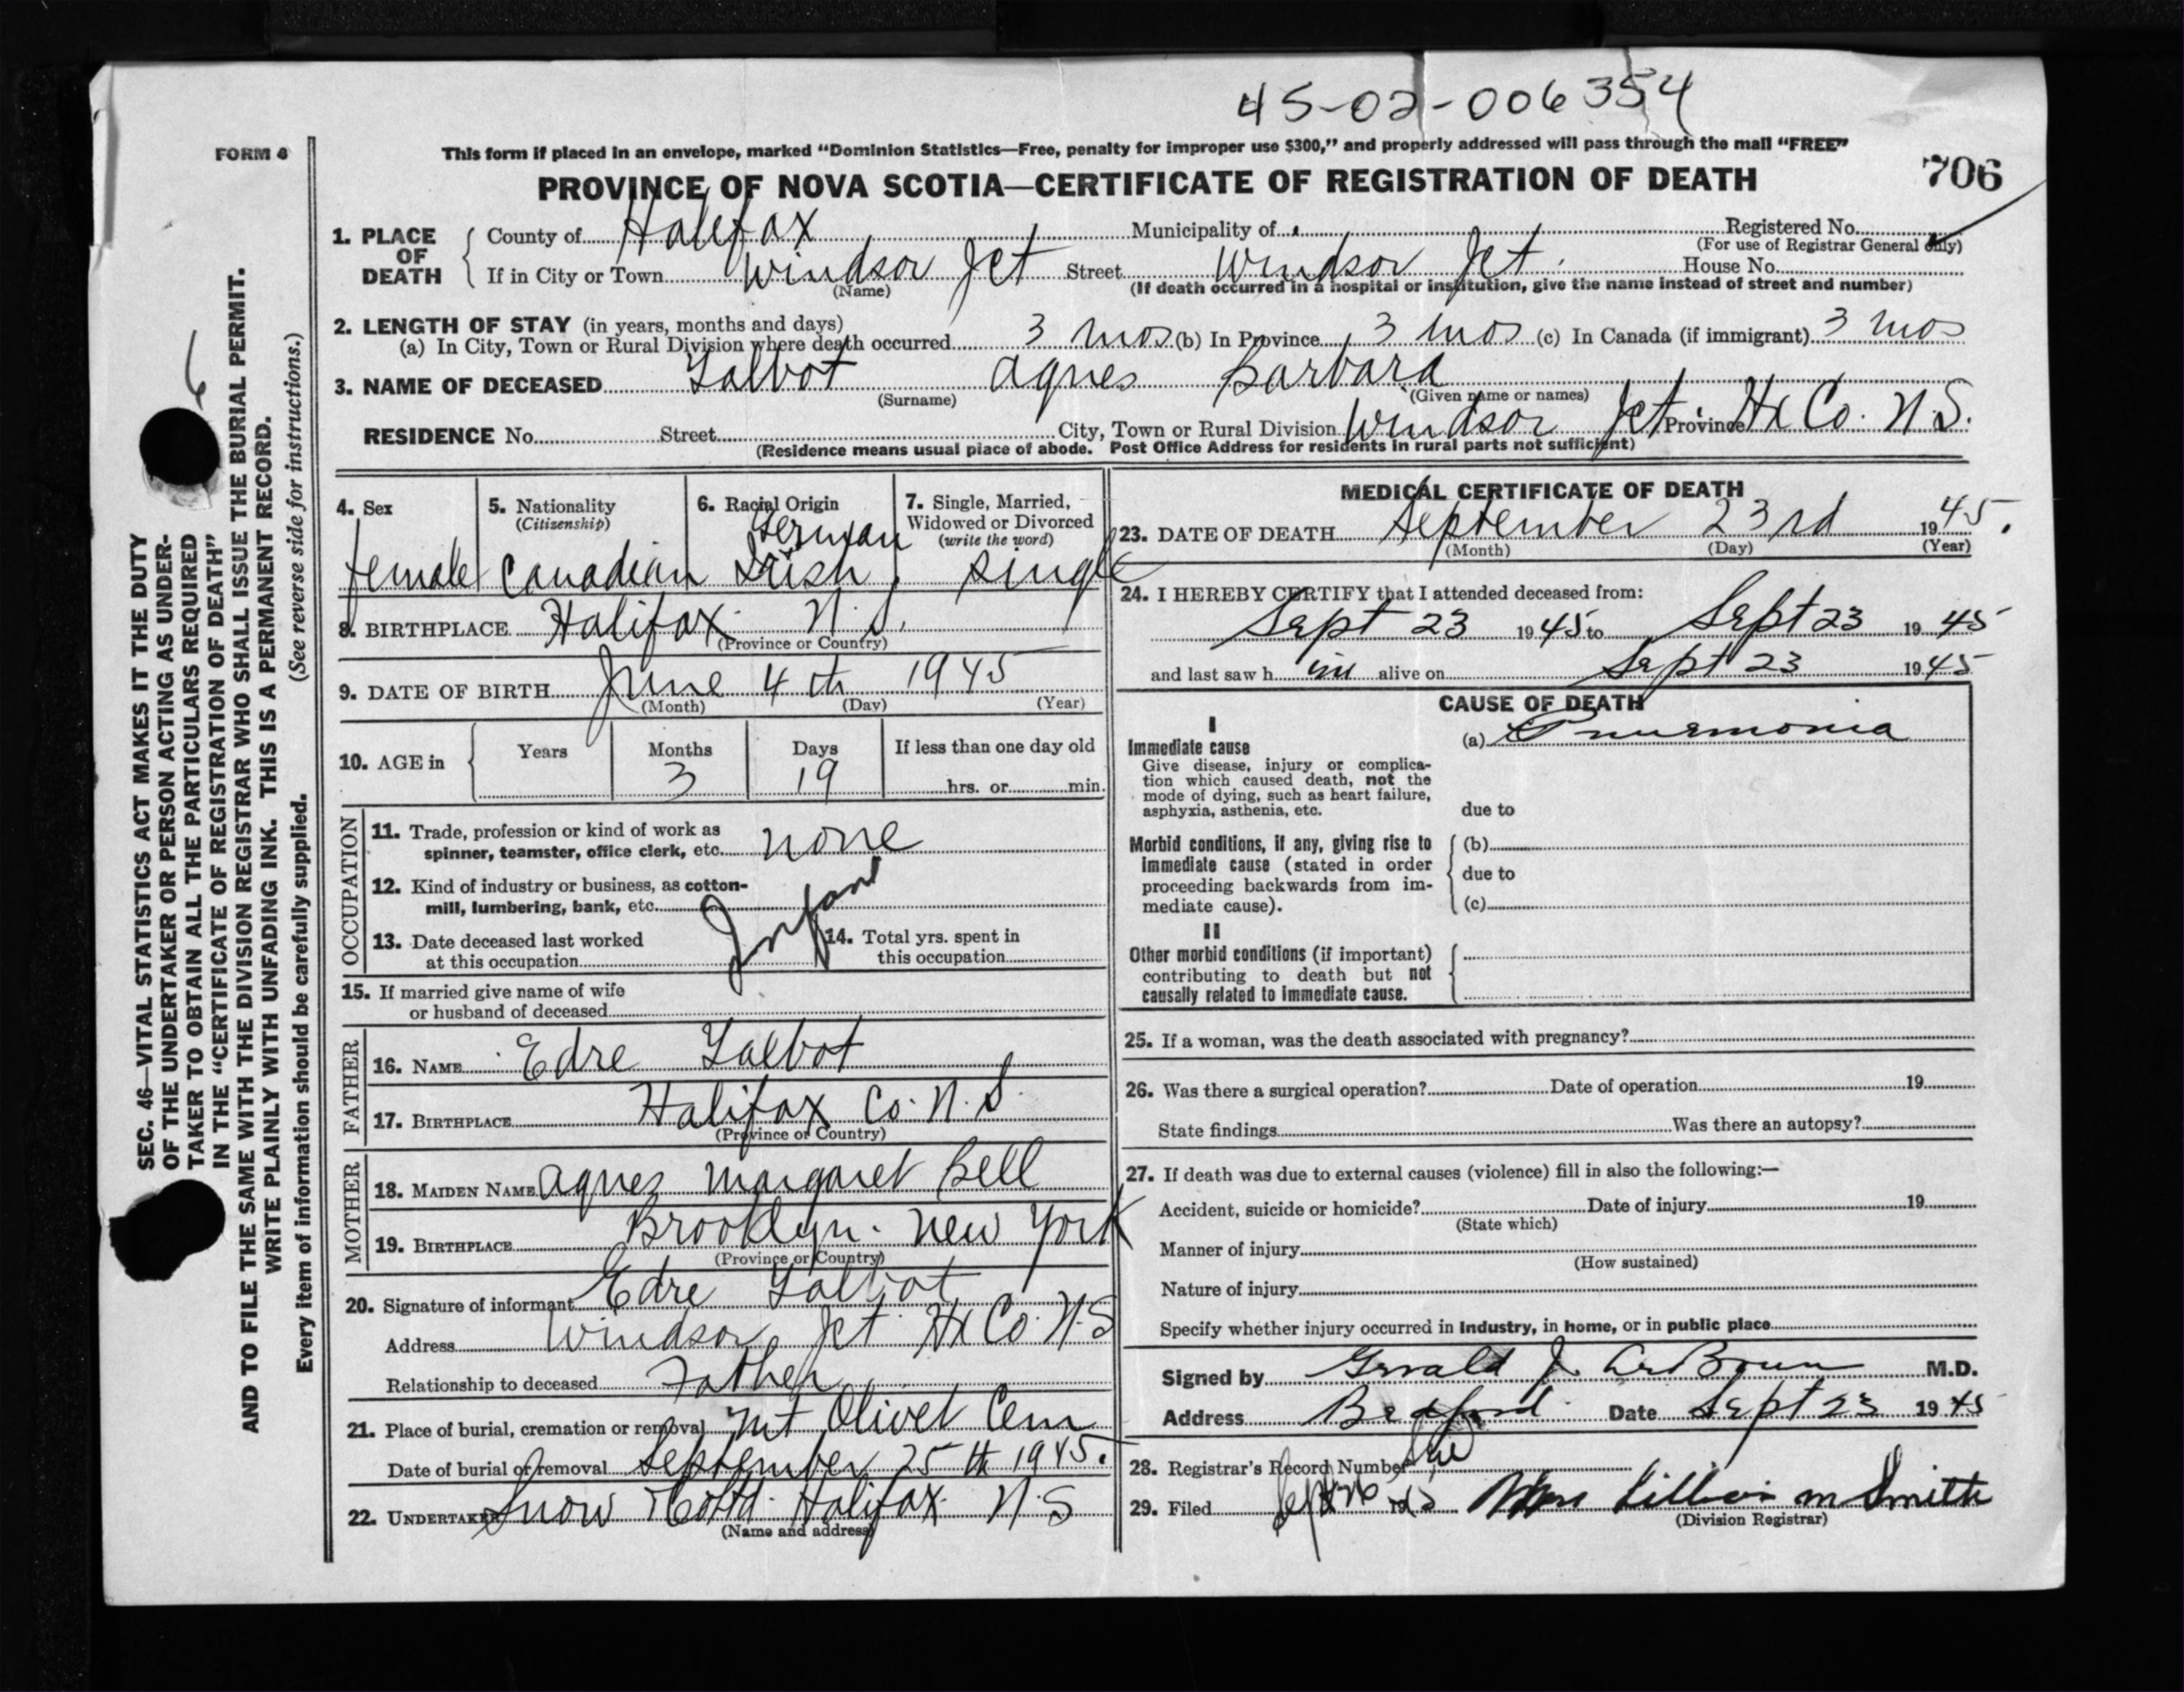 45-02-006354
FORM 6
This form if placed in an envelope, marked “Dominion Statistics—Free, penalty for improper use $300,” and properly addressed will pass through the mail “FREE”
706
PROVINCE OF NOVA SCOTIA—CERTIFICATE OF REGISTRATION OF DEATH
1. PLACE OF DEATH
County of Halifax Municipality of Registered No.
(For use of Registrar General only)
If in City or Town Windsor Jct Street Windsor Jct. House No.
(Name) (If death occurred in a hospital or institution, give the name instead of street and number)
2. LENGTH OF STAY (in years, months and days)
(a) In City, Town or Rural Division where death occurred 3 mos (b) In Province 3 mos (c) In Canada (if immigrant) 3 mos
3. NAME OF DECEASED Talbot Agnes Barbara
(Surname) (Given name or names)
RESIDENCE No. Street City, Town or Rural Division Windsor Jct Province Hx Co. N.S.
(Residence means usual place of abode. Post Office Address for residents in rural parts not sufficient)
4. Sex
female
5. Nationality
(Citizenship)
Canadian
6. Racial Origin
German
Irish
7. Single, Married,
Widowed or Divorced
(write the word)
single
8. BIRTHPLACE Halifax N.S.
(Province or Country)
9. DATE OF BIRTH June 4th 1945
(Month) (Day) (Year)
10. AGE in
Years Months Days If less than one day old
3 19 hrs. or min.
OCCUPATION
11. Trade, profession or kind of work as
spinner, teamster, office clerk, etc. none
12. Kind of industry or business, as cotton-
mill, lumbering, bank, etc.
Infant
13. Date deceased last worked
at this occupation
14. Total yrs. spent in
this occupation
15. If married give name of wife
or husband of deceased
FATHER
16. NAME Edre Talbot
17. BIRTHPLACE Halifax Co. N.S.
(Province or Country)
MOTHER
18. MAIDEN NAME Agnes Margaret Bell
19. BIRTHPLACE Brooklyn. New York
(Province or Country)
20. Signature of informant Edre Talbot
Address Windsor Jct Hx Co. N.S
Relationship to deceased Father
21. Place of burial, cremation or removal Mt Olivet Cem
Date of burial or removal September 25th 1945.
22. UNDERTAKER Snow Halifax. N.S
(Name and address)
MEDICAL CERTIFICATE OF DEATH
23. DATE OF DEATH September 23rd 1945.
(Month) (Day) (Year)
24. I HEREBY CERTIFY that I attended deceased from:
Sept 23 1945 to Sept 23 1945
and last saw h im alive on Sept 23 1945
CAUSE OF DEATH
I
Immediate cause
Give disease, injury or complica-
tion which caused death, not the
mode of dying, such as heart failure,
asphyxia, asthenia, etc.
(a) Pneumonia
due to
Morbid conditions, if any, giving rise to
immediate cause (stated in order
proceeding backwards from im-
mediate cause).
(b)
due to
(c)
II
Other morbid conditions (if important)
contributing to death but not
causally related to immediate cause.
25. If a woman, was the death associated with pregnancy?
26. Was there a surgical operation? Date of operation 19
State findings Was there an autopsy?
27. If death was due to external causes (violence) fill in also the following:—
Accident, suicide or homicide? Date of injury 19
(State which)
Manner of injury
(How sustained)
Nature of injury
Specify whether injury occurred in industry, in home, or in public place
Signed by Gerald J. M.D.
Address Bedford. Date Sept 23 1945
28. Registrar's Record Number
29. Filed Sept 26 Mrs Lillian M Smith
(Division Registrar)
SEC. 46—VITAL STATISTICS ACT MAKES IT THE DUTY
OF THE UNDERTAKER OR PERSON ACTING AS UNDER-
TAKER TO OBTAIN ALL THE PARTICULARS REQUIRED
IN THE “CERTIFICATE OF REGISTRATION OF DEATH”
AND TO FILE THE SAME WITH THE DIVISION REGISTRAR WHO SHALL ISSUE THE BURIAL PERMIT.
WRITE PLAINLY WITH UNFADING INK. THIS IS A PERMANENT RECORD.
Every item of information should be carefully supplied. (See reverse side for instructions.)
6